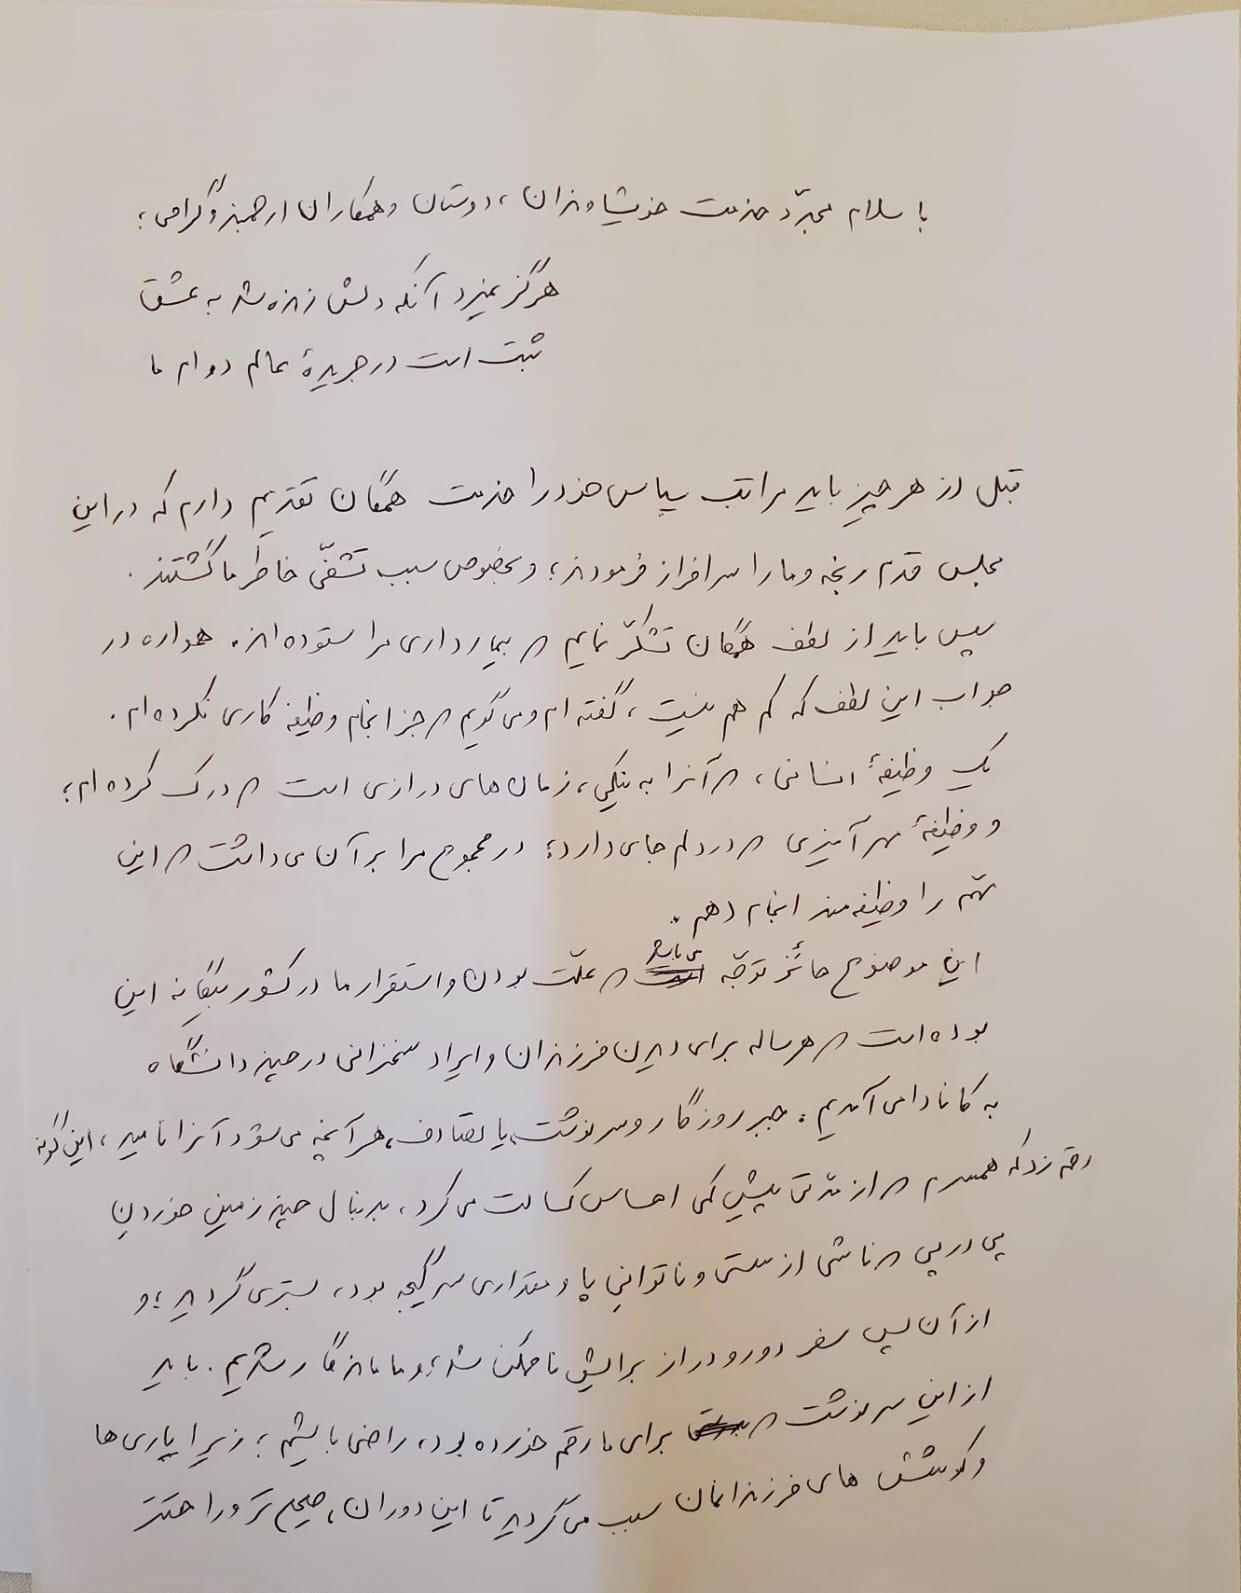 با سلام مجدّد خدمت خویشاوندان، دوستان و همکاران ارجمند و گرامی؛
هرگز نمیرد آنکه دلش زنده شد به عشق
ثبت است در جریدۀ عالم دوام ما
قبل از هر چیز باید مراتب سپاس خود را خدمت همگان تقدیم دارم که در این
مجلس قدم رنجه و ما را سرافراز فرمودند؛ و بخصوص سبب تشفّی خاطر ما گشتند.
سپس باید از لطف همگان تشکّر نمایم که بیمارداری مرا ستوده اند. همواره در
جواب این لطف که کم هم نیست، گفته ام و می گویم که جز انجام وظیفه کاری نکرده ام.
یک وظیفۀ انسانی، که آنرا به نیکی، زمان های درازی است که درک کرده ام؛
و وظیفۀ مهرآمیزی که در دلم جای دارد؛ در مجموع مرا بر آن می داشت که این
مهّم را وظیفه مند انجام دهم.
این موضوع حائز توجّه می باشد که علّت بودن و استقرار ما در کشور بیگانه این
بوده است که هر ساله برای دیدن فرزندان و ایراد سخنرانی در چند دانشگاه
به کانادا می آمدیم. جبر روزگار و سرنوشت، یا تصادف، هر آنچه می شود آنرا نامید، این گونه
رقم زد که همسرم که از مدّتی پیش کمی احساس کسالت می کرد، بدنبال چند زمین خوردن
پی در پی که ناشی از سستی و ناتوانی پا و مقداری سرگیجه بود، بستری گردید؛ و
از آن پس سفر دور و دراز برایش ناممکن شد؛ و ما ماندگار شدیم. باید
از این سرنوشت که برای ما رقم خورده بود، راضی باشیم؛ زیرا یاری ها
و کوشش های فرزندانمان سبب می گردید تا این دوران، صحیح تر و راحتتر